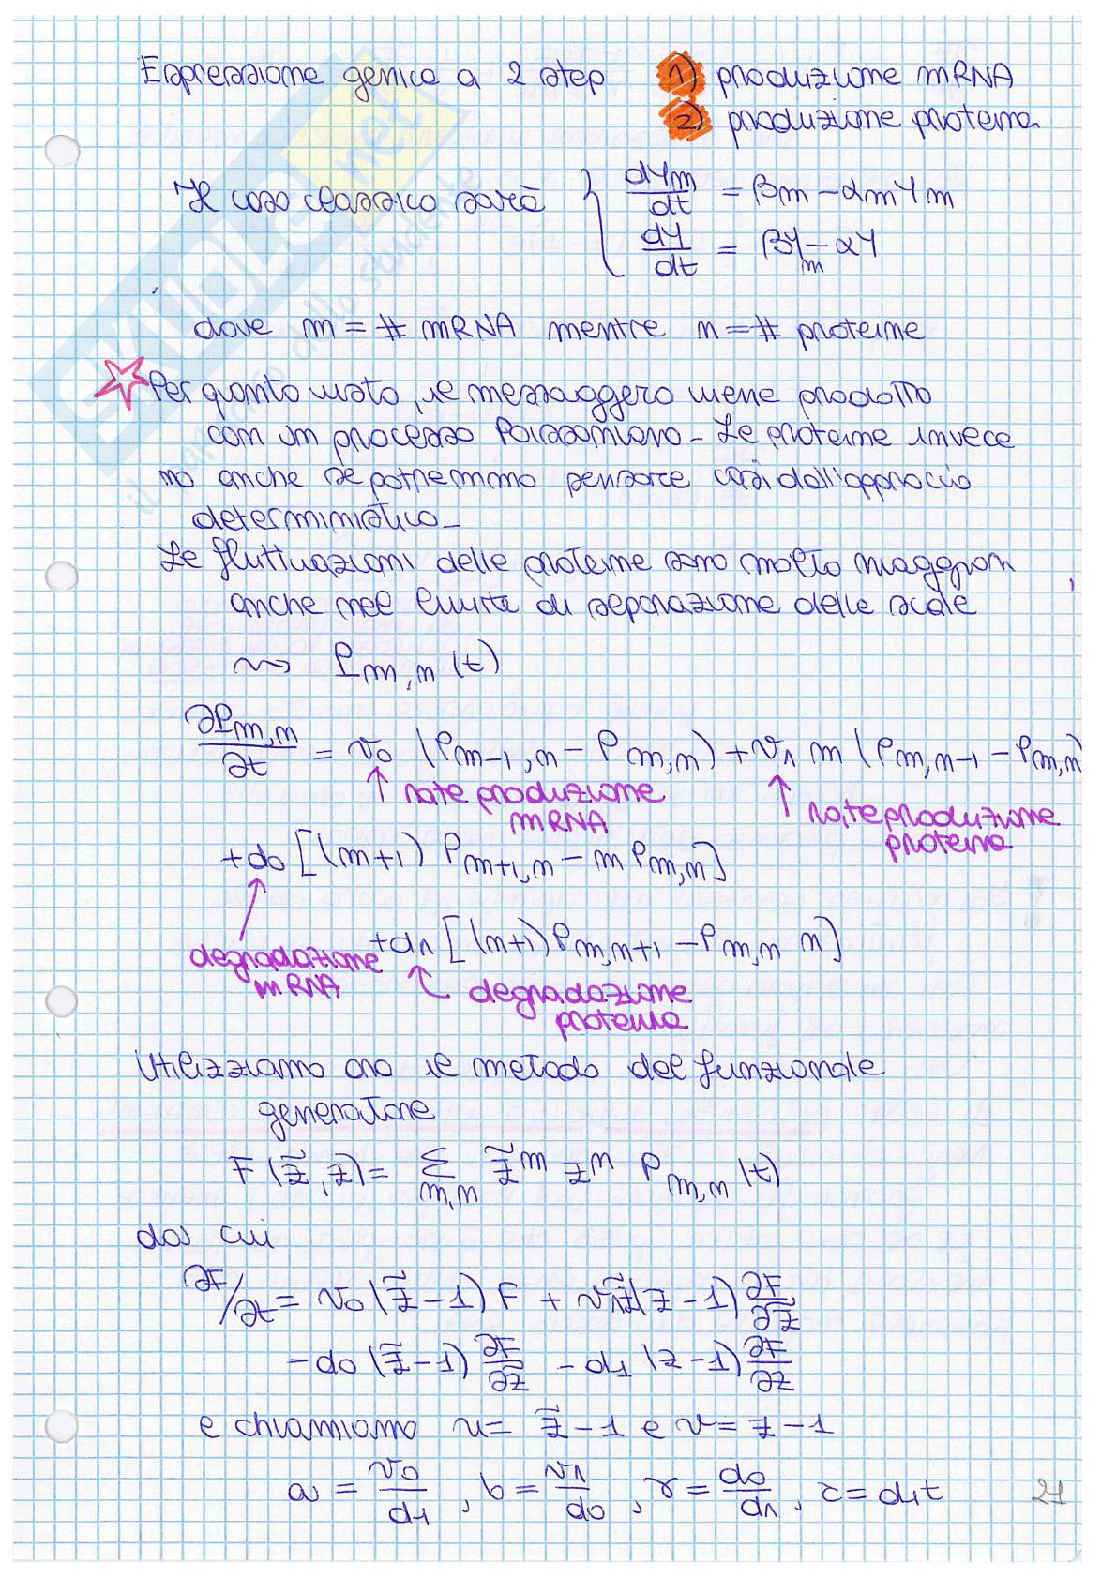 Espressione genica a 2 step 1) produzione mRNA
2) produzione proteina
Il caso classico sarà { dYm/dt = βm - αmYm
dY/dt = βYm - αY
dove m = # mRNA mentre n = # proteine
☆ Per quanto visto, il messaggero viene prodotto
con un processo Poissoniano. Le proteine invece
no anche se potremmo pensare così dall'approccio
deterministico.
Le fluttuazioni delle proteine sono molto maggiori
anche nel limite di separazione delle scale
⇝ Pm,n(t)
∂Pm,n/∂t = v0 (Pm-1,n - Pm,n) + v1 m (Pm,n-1 - Pm,n)
↑ rate produzione mRNA ↑ rate produzione proteina
+ d0 [(m+1) Pm+1,n - m Pm,n]
+ d1 [(n+1) Pm,n+1 - Pm,n n]
degradazione mRNA
degradazione proteina
Utilizziamo ora il metodo del funzionale
generatore
F(z̃, z) = Σm,n z̃^m z^n Pm,n(t)
da cui
∂F/∂t = v0 (z̃ - 1) F + v1 z̃ (z - 1) ∂F/∂z̃
- d0 (z̃ - 1) ∂F/∂z̃ - d1 (z - 1) ∂F/∂z
e chiamiamo u = z̃ - 1 e v = z - 1
a = v0/d1, b = v1/d0, r = d0/d1, τ = d1t 21